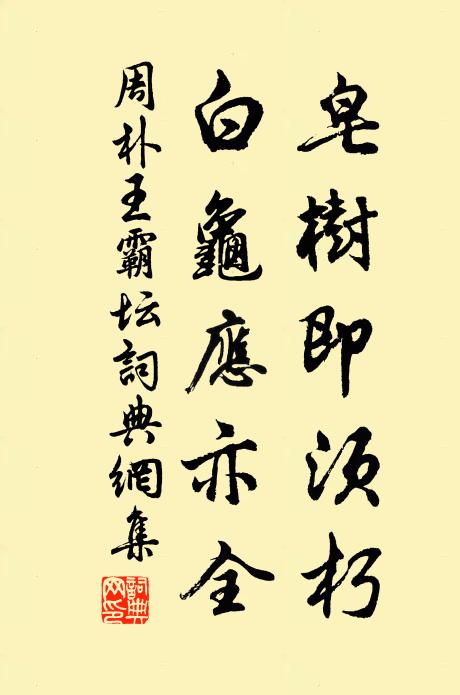 皂樹即須朽
白龜應亦全
周朴王霸坛詞典網集
詞典網印